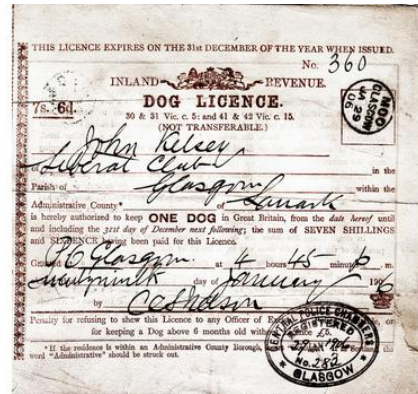 THIS LICENCE EXPIRES ON THE 31st DECEMBER OF THE YEAR WHEN ISSUED.
No. 360
INLAND REVENUE.
7s. 6d.
DOG LICENCE.
30 & 31 Vic. c. 5: and 41 & 42 Vic. c. 15.
(NOT TRANSFERABLE.)
GLASGOW
JA 29
06
John Kelsey
of Liberal Club in the
Parish of Glasgow within the
Administrative County* of Lanark
is hereby authorized to keep ONE DOG in Great Britain, from the date hereof until
and including the 31st day of December next following; the sum of SEVEN SHILLINGS
and SIXPENCE having been paid for this Licence.
at Glasgow. at 4 hours 45 minutes m.
day of January 1906
by
Penalty for refusing to shew this Licence to any Officer of or
for keeping a Dog above 6 months old without Licence £5.
*If the residence is within an Administrative County Borough, the
word "Administrative" should be struck out.
CENTRAL POLICE CHAMBERS
REGISTERED
29 JAN 1906
No. 283
GLASGOW